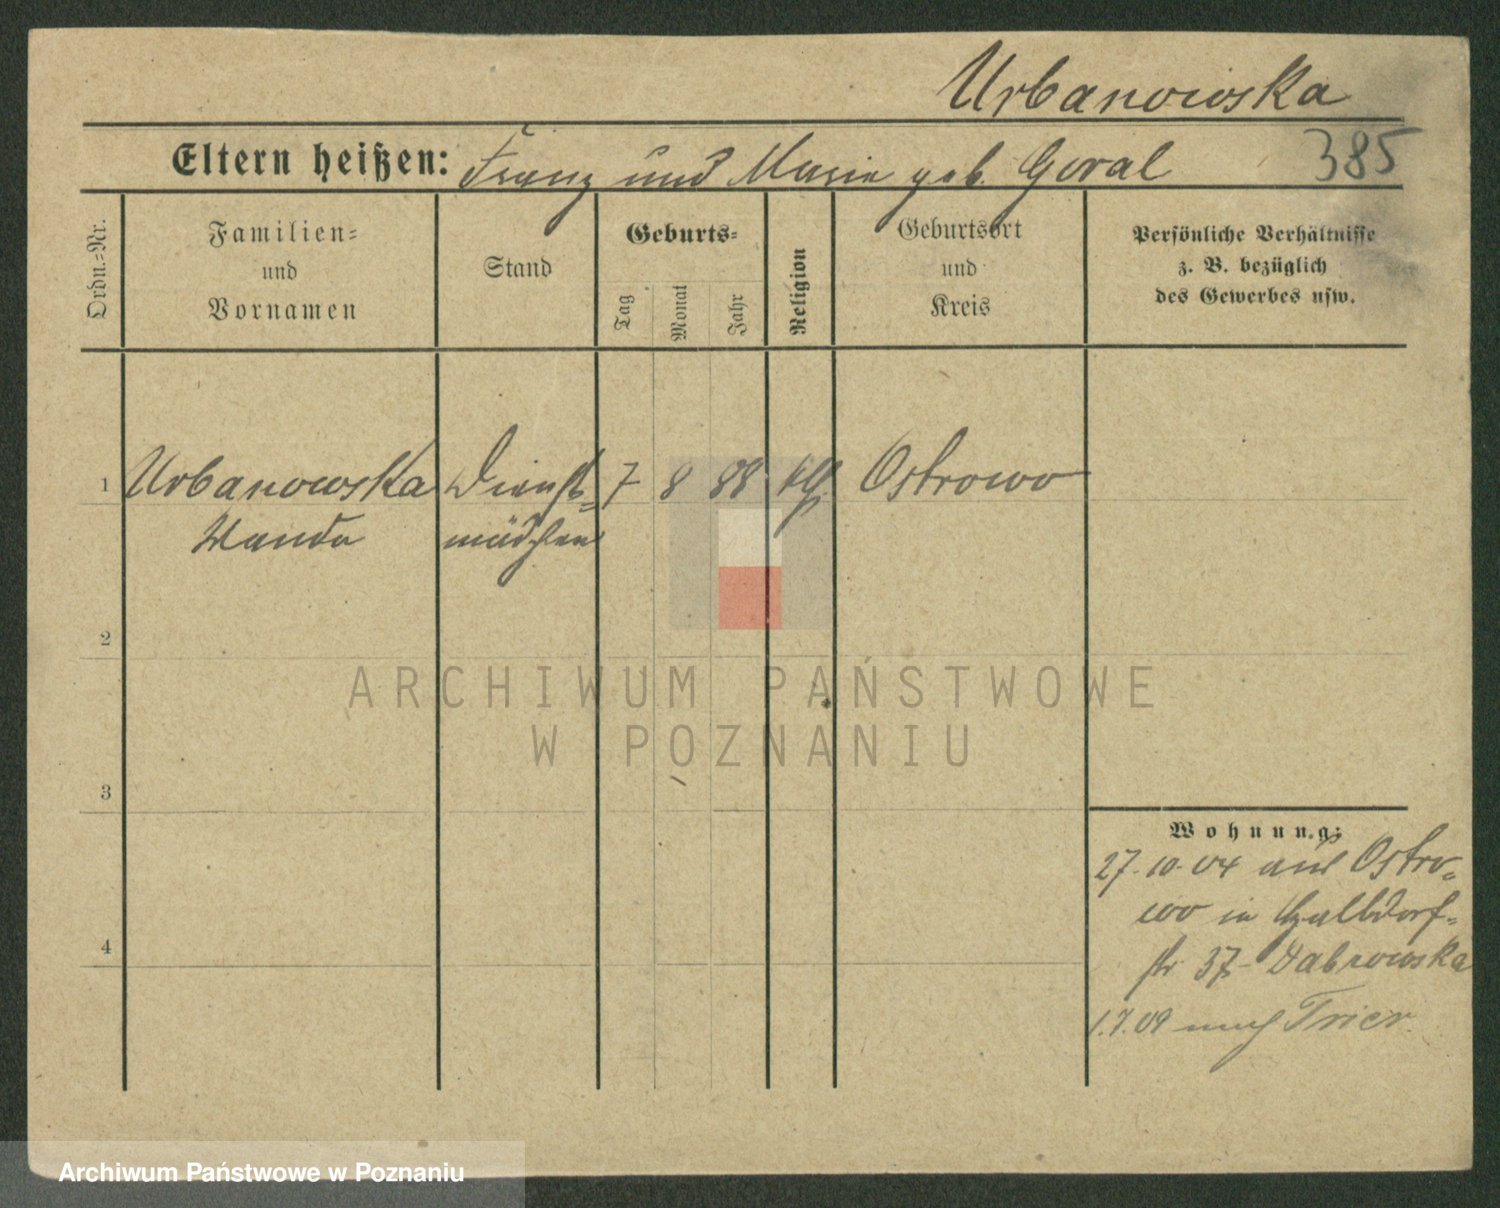 Urbanowska
Eltern heißen: Franz und Marie geb. Goral 385
Ordn.-Nr.
Familien-
und
Vornamen
Stand
Geburts-
Tag
Monat
Jahr
Religion
Geburtsort
und
Kreis
Persönliche Verhältnisse
z. B. bezüglich
des Gewerbes usw.
1 Urbanowska Dienst- 7 8 88 kth. Ostrowo
Wanda mädchen
2
ARCHIWUM PAŃSTWOWE
W POZNANIU
3
Wohnung:
27.10.04 aus Ostro-
wo in
str 37 - Dabrowska
4
1.7.09 nach Trier.
Archiwum Państwowe w Poznaniu